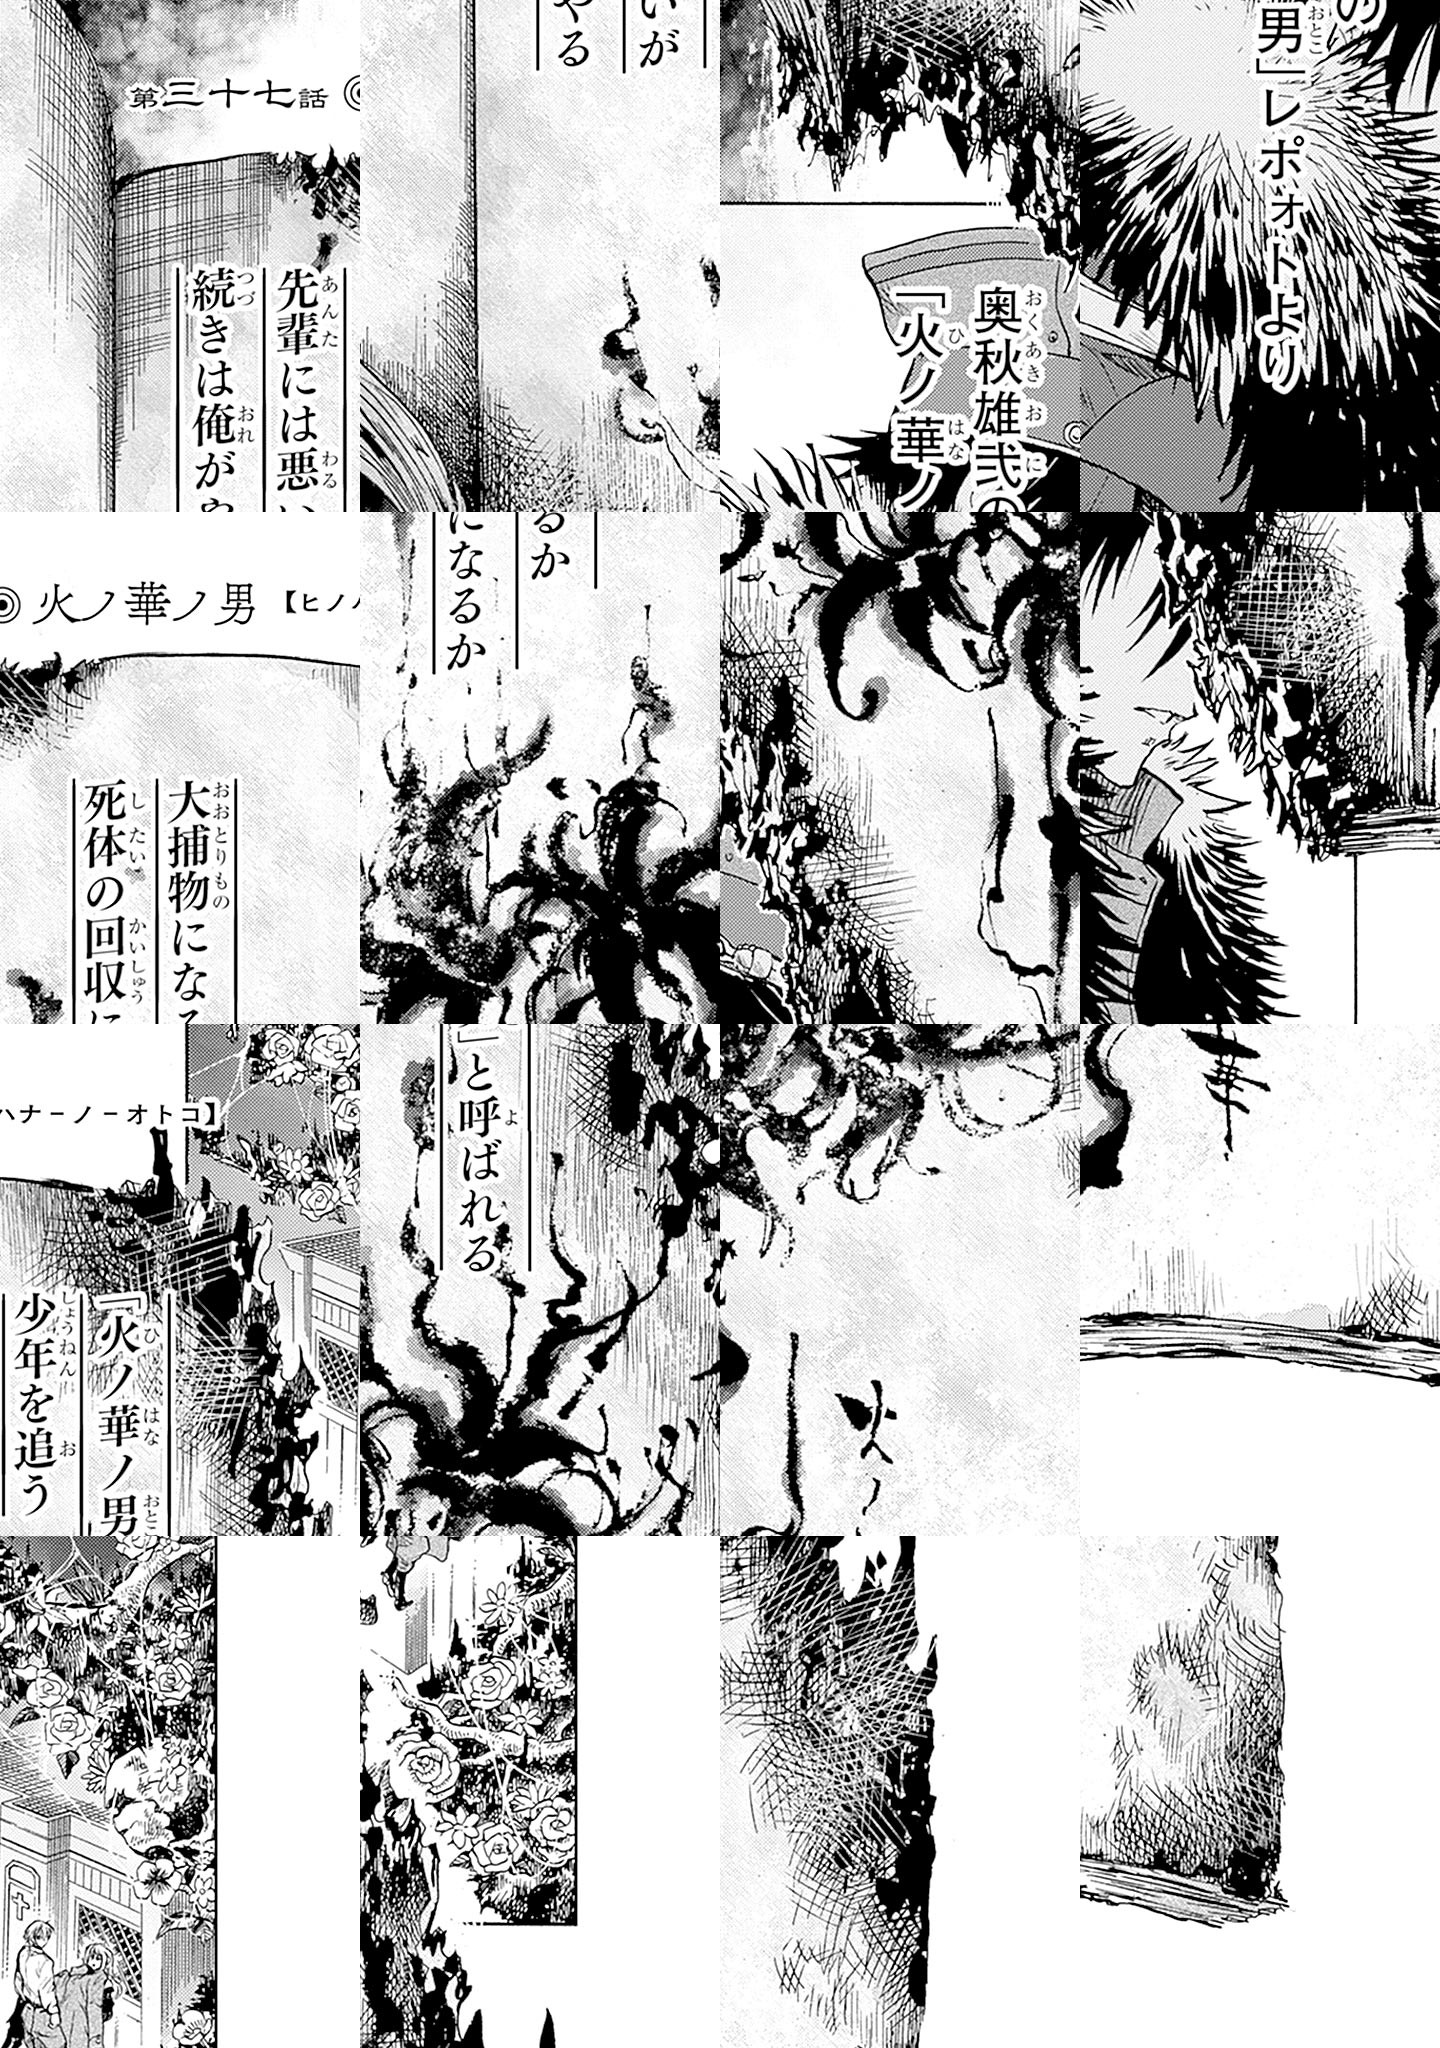 第三十七話 ◎ 火ノ華ノ男【ヒノハナ－ノ－オトコ】
『火ノ華ノ男』と呼ばれる
少年を追う
大捕物になるか
死体の回収になるか
先輩には悪いが
続きは俺がやる
奥秋雄弐の
「火ノ華ノ男」レポォトより
火ノ華